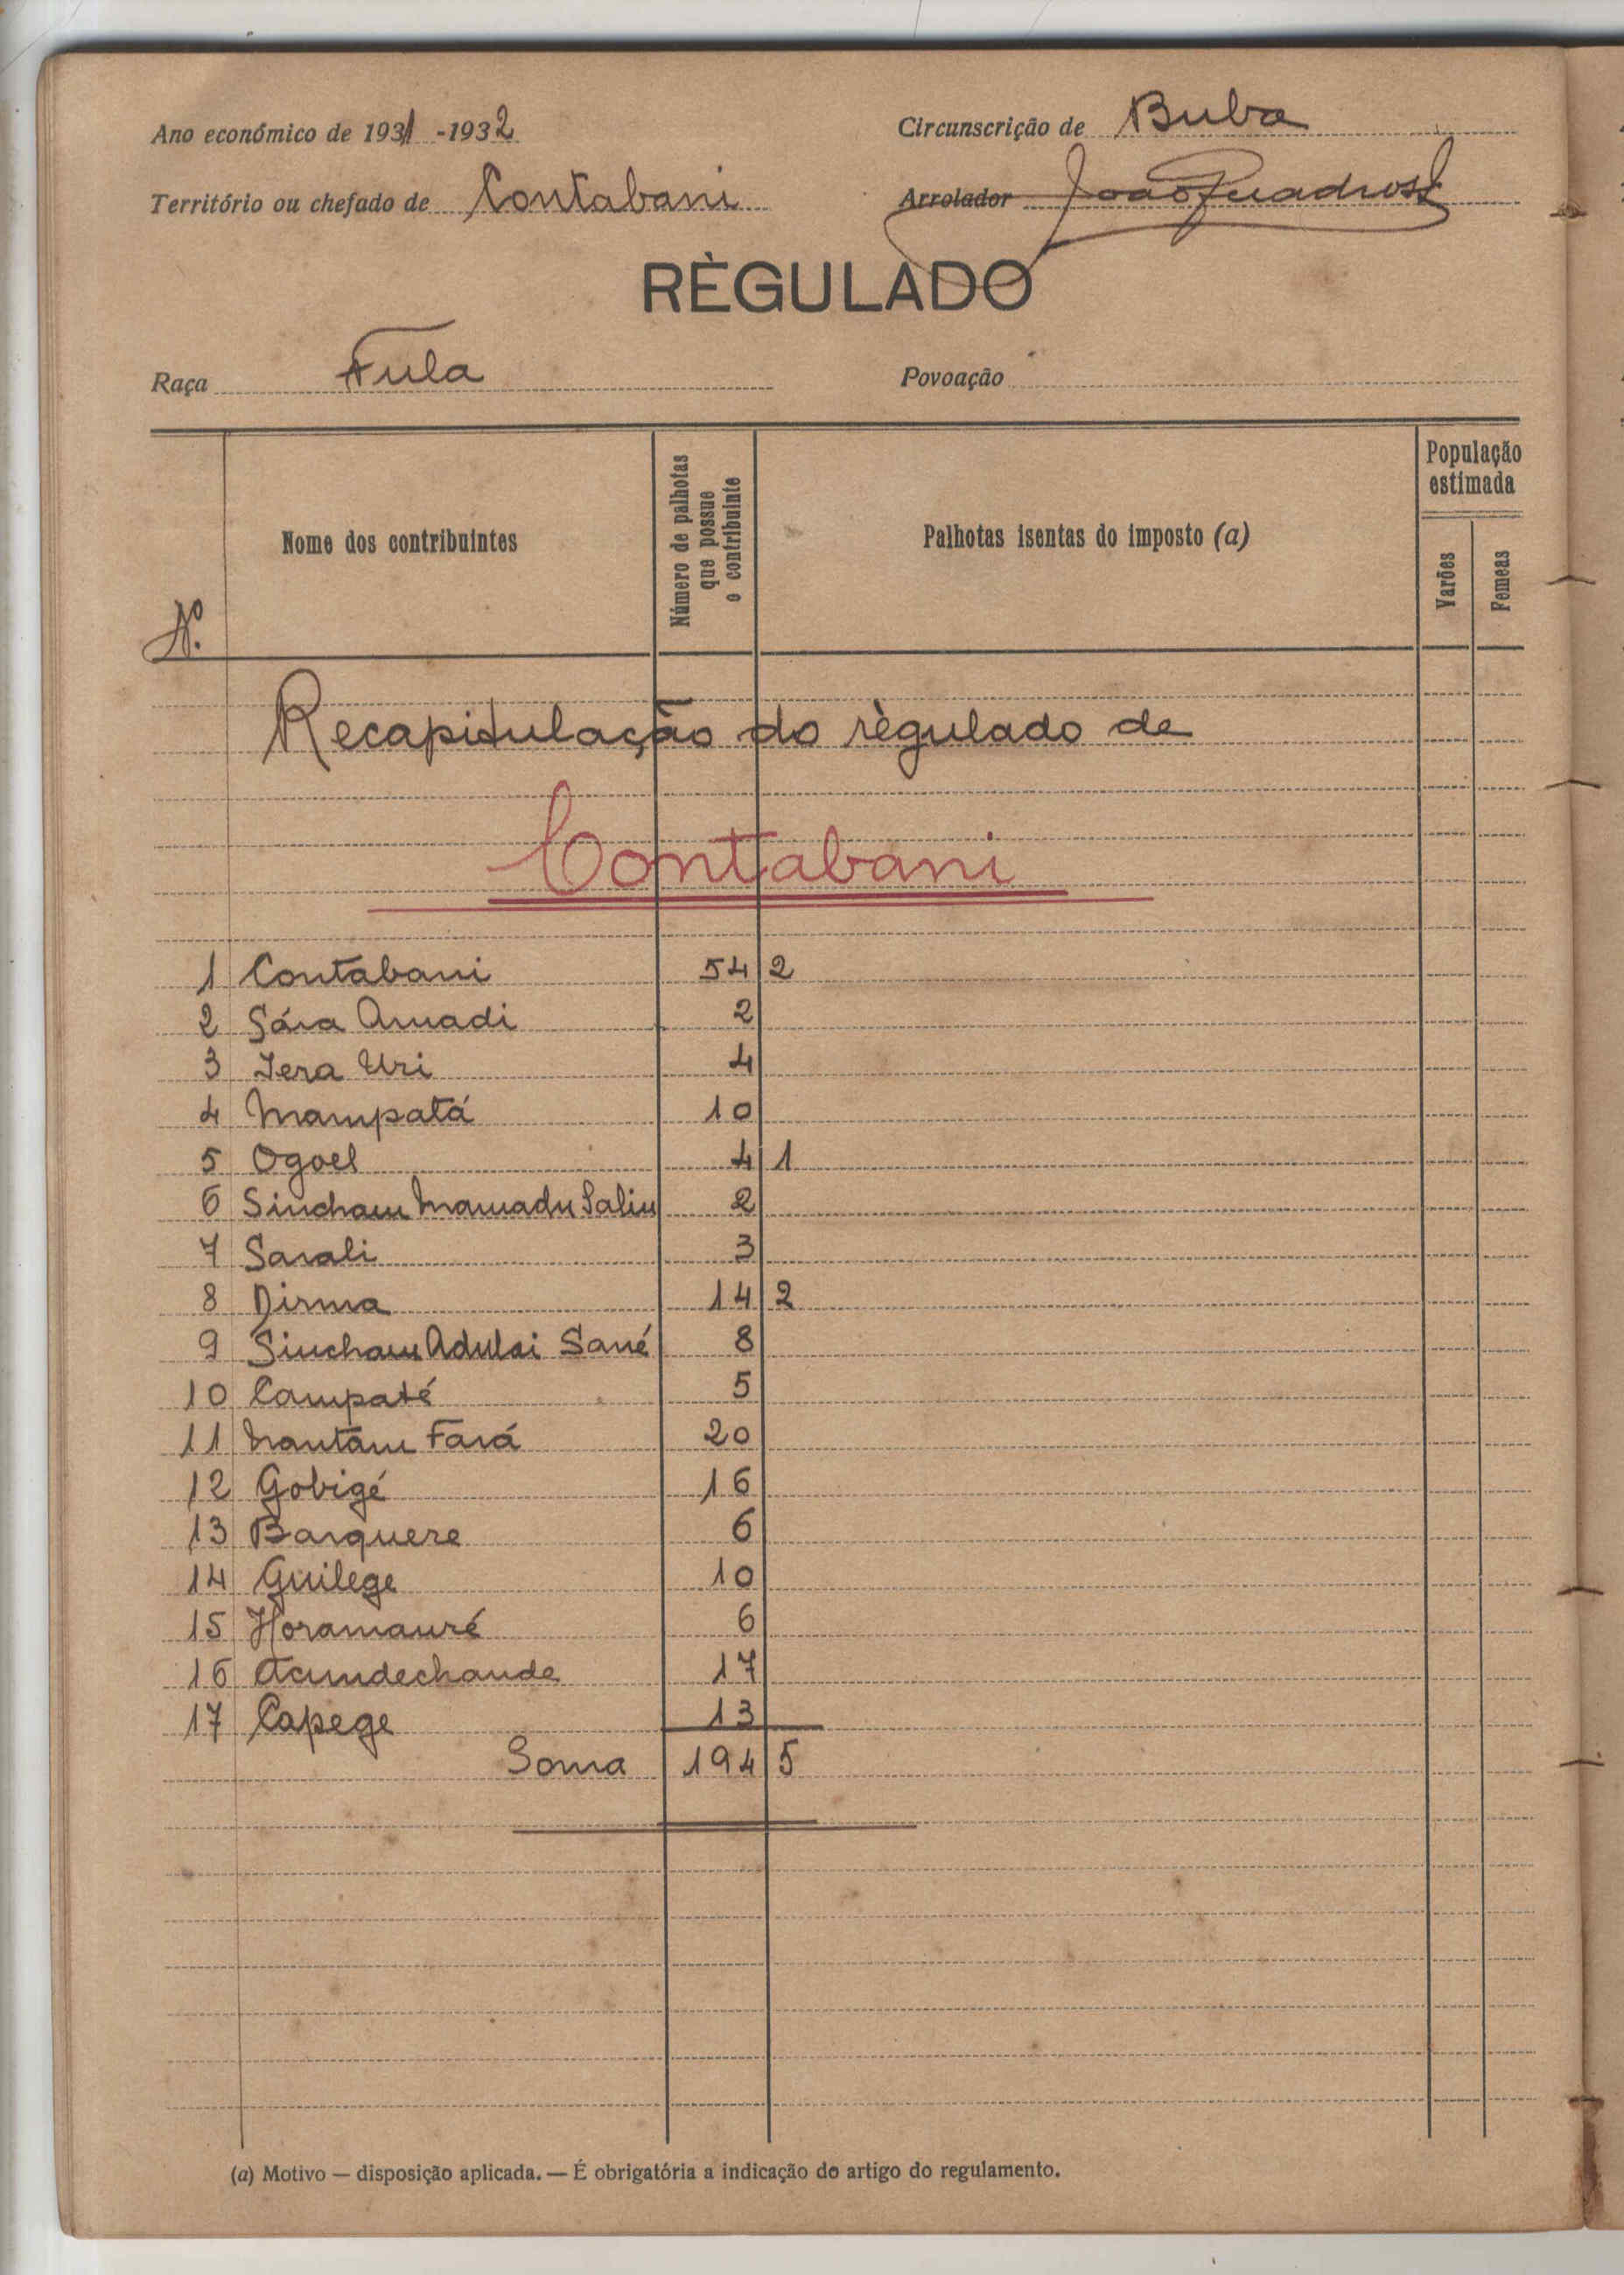 Ano económico de 1931 -1932
Circunscrição de Buba
Território ou chefado de Contabani
Arrolador João Quadros
RÈGULADO
Raça Fula
Povoação
Nº
Nome dos contribuintes
Número de palhotas que possue o contribuinte
Palhotas isentas do imposto (a)
População estimada
Varões
Femeas
Recapitulação do règulado de
Contabani
1 Contabani 54 2
2 Sára Amadi 2
3 Iera Uri 4
4 Mampatá 10
5 Ogoel 4 1
6 Sincham Mamadu Saliu 2
7 Sarali 3
8 Dirma 14 2
9 Sincham Adulai Sané 8
10 Campaté 5
11 Nantam Fará 20
12 Gobigé 16
13 Barquere 6
14 Guilege 10
15 Horamauré 6
16 17
17 Capege 13
Soma 194 5
(a) Motivo — disposição aplicada. — É obrigatória a indicação do artigo do regulamento.